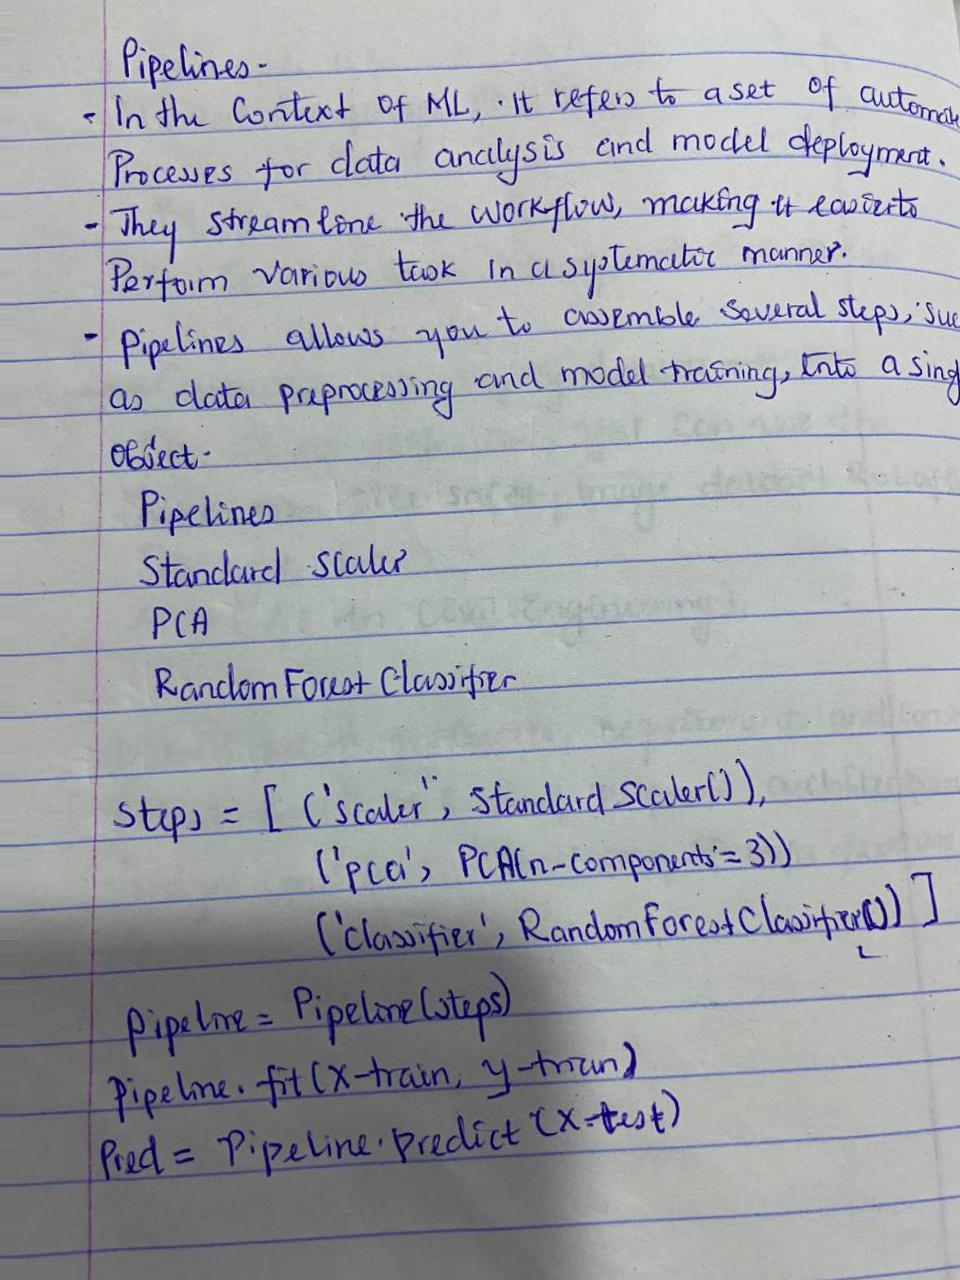 Pipelines -
- In the Context of ML, It refers to a set of automate
Processes for data analysis and model deployment.
- They streamline the workflow, making it easier to
Perform various task in a systematic manner.
- Pipelines allows you to assemble several steps, suc
as data preprocessing and model training, Into a sing
object.
Pipelines
Standard scaler
PCA
RandomForest Classifier
Steps = [ ('scaler', Standard Scaler()),
('pca', PCA(n-components = 3))
('classifier', RandomForestClassifier())]
pipeline = Pipeline(steps)
Pipeline.fit(X-train, y-train)
Pred = Pipeline.predict(X-test)